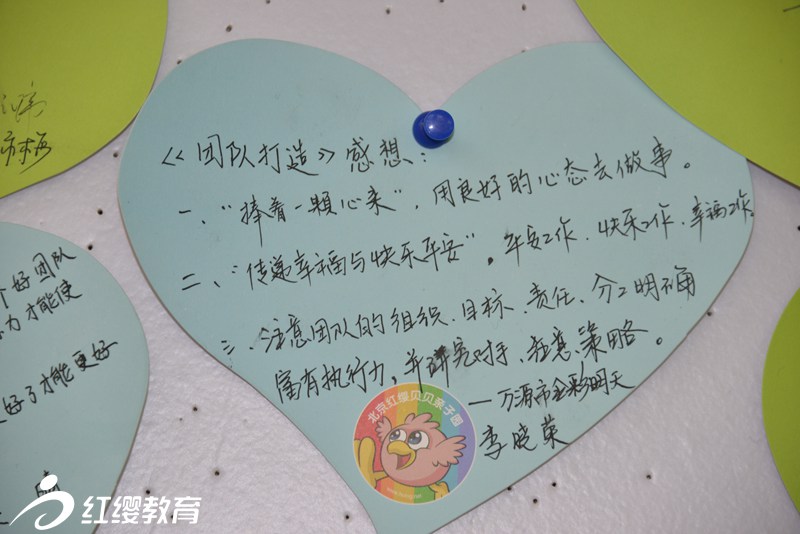 《团队打造》感想：
一、“捧着一颗心来”，用良好的心态去做事。
二、“传递幸福与快乐平安”。平安工作、快乐工作、幸福工作。
三、注意团队的组织、目标、责任、分工明确
富有执行力，并讲究对手、在意、策略。
——万源市金彩明天
李晓荣
北京红缨贝贝亲子园
好团队
力才能使
好了才能更好
红缨教育